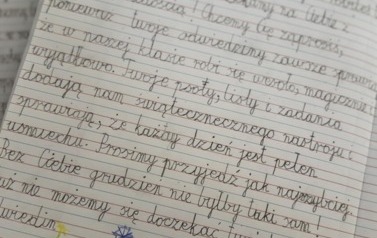 na Ciebie z
Chcemy Cię zaprosić,
ponieważ twoje odwiedziny zawsze
że w naszej klasie robi się wesoło, magicznie i
wyjątkowo. Twoje psoty, listy i zadania
dodają nam świątecznecznego nastroju i
sprawiają, że każdy dzień jest pełen
uśmiechu. Prosimy przyjedź jak najszybciej.
Bez Ciebie grudzień nie byłby taki sam
już nie możemy się doczekać